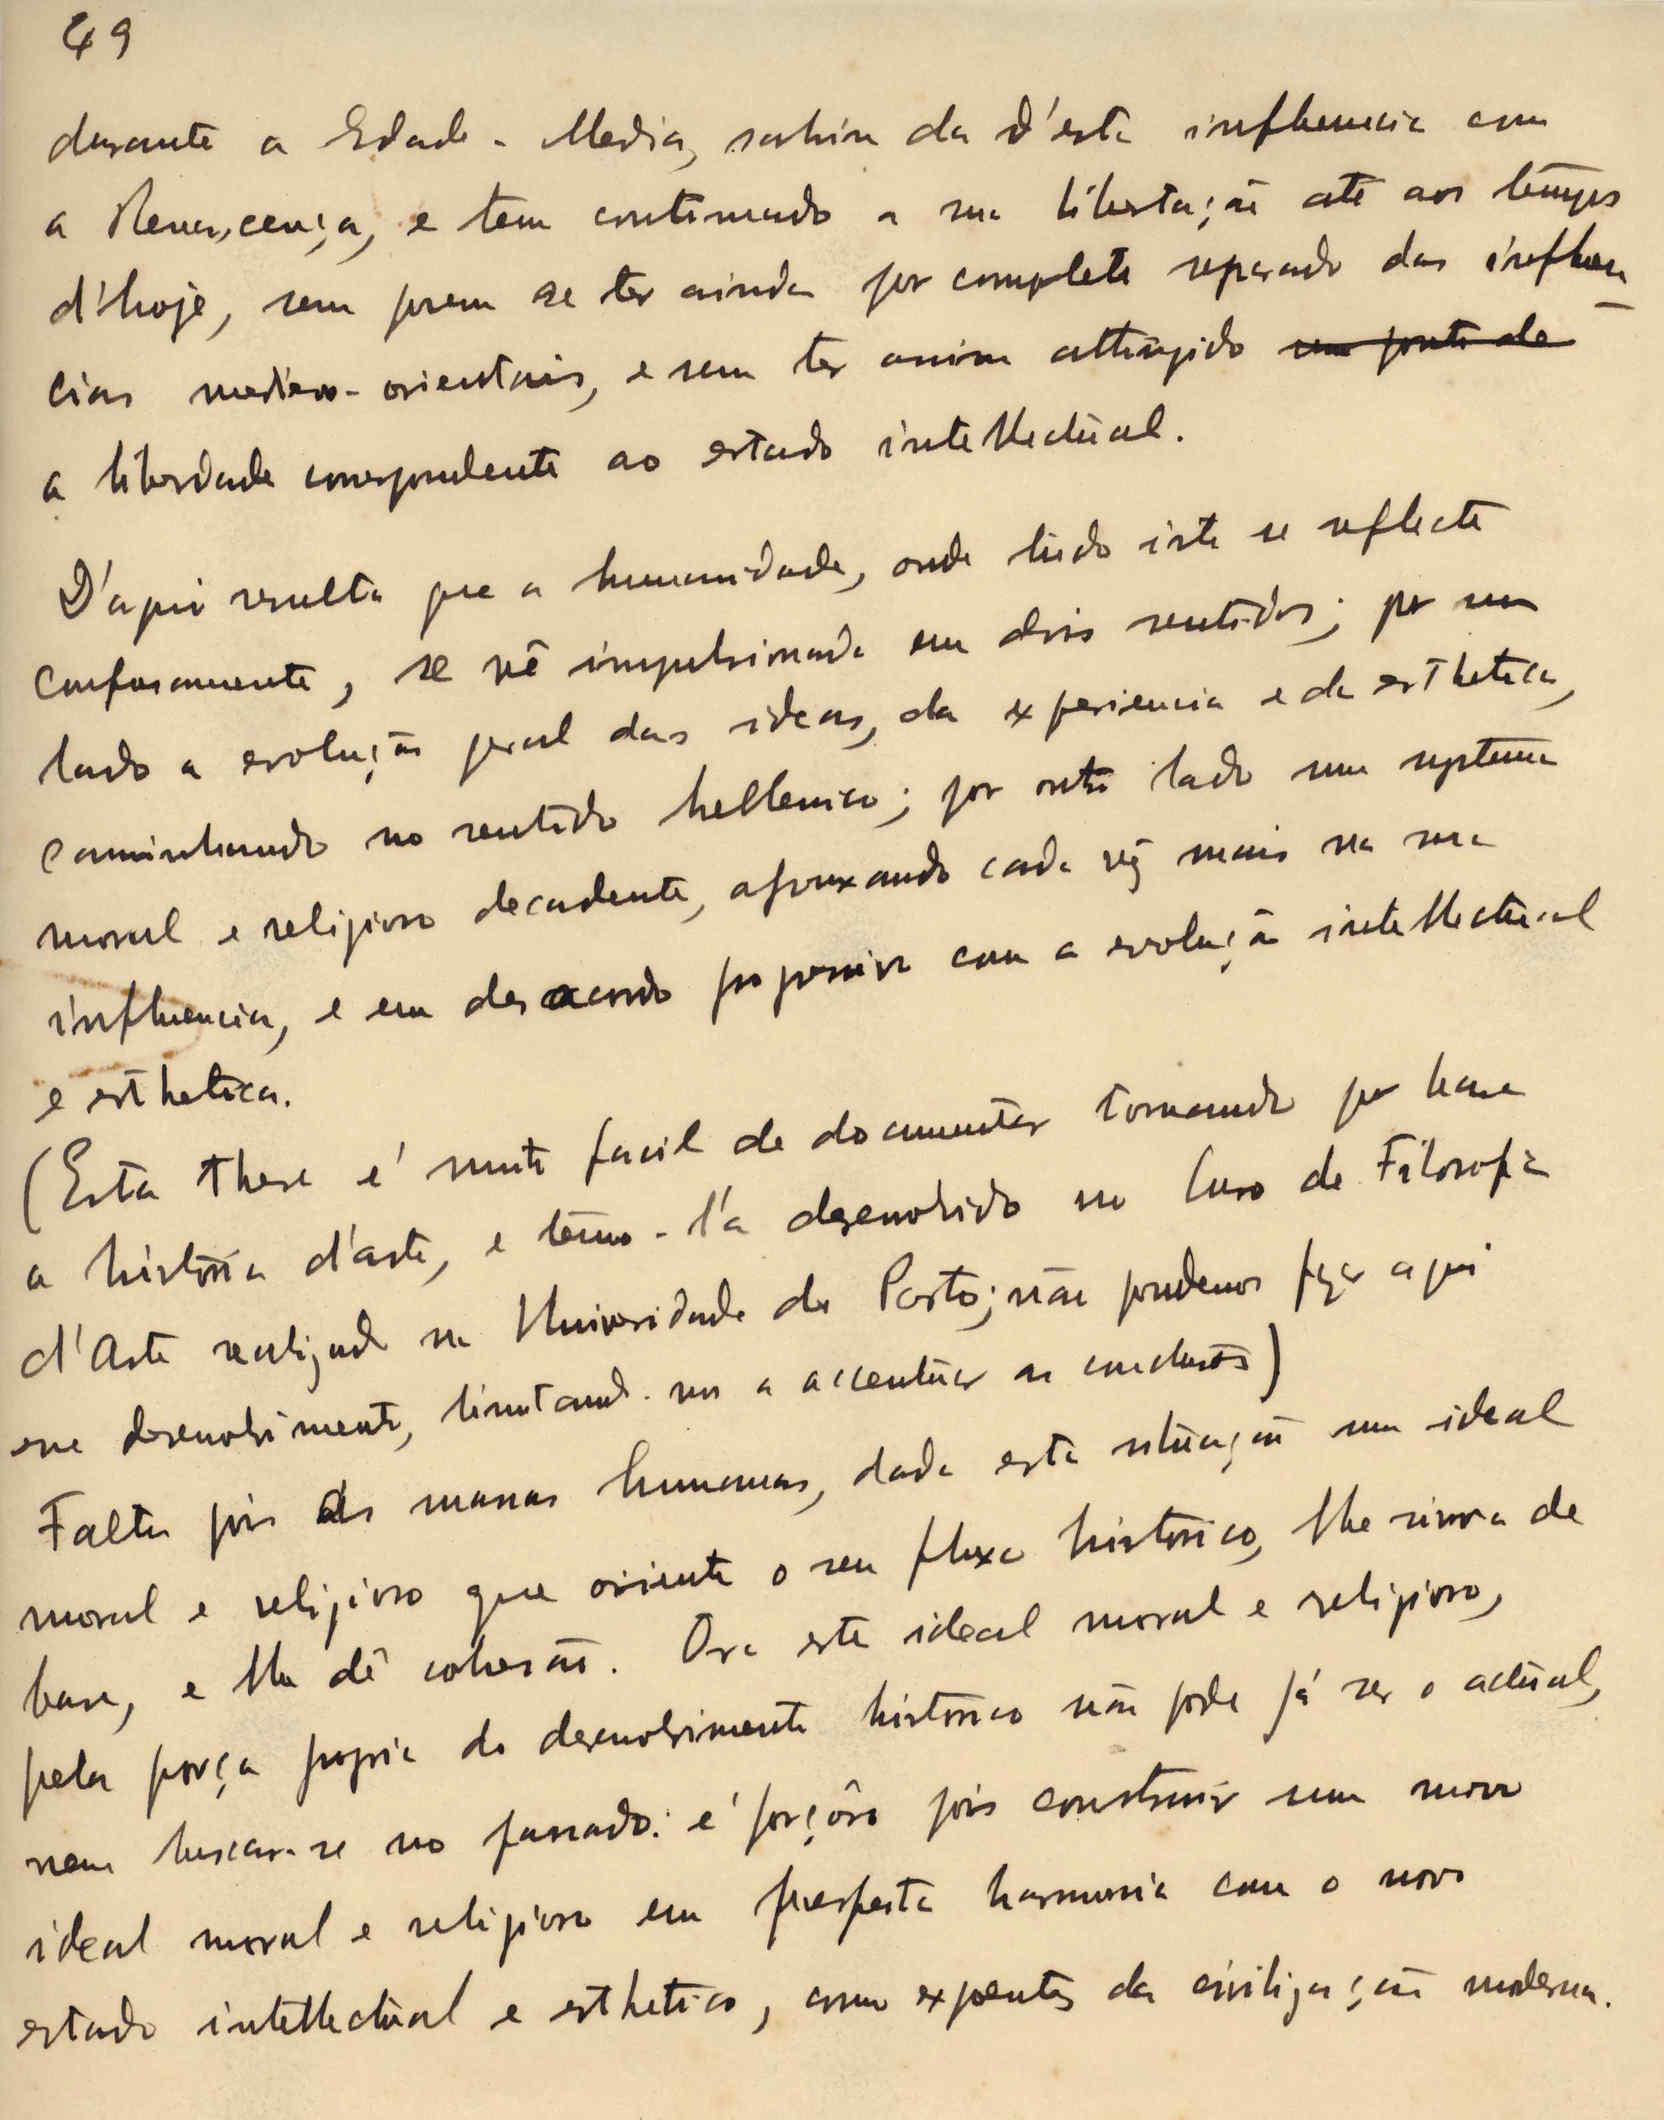 49
durante a Edade-Media, sahiu da d'esta influencia com
a Renascença, e tem continuado a sua libertação até aos tempos
d'hoje, sem porem se ter ainda por completo separado das influen
cias medievo-orientais, e sem ter assim attingido um ponto de
a liberdade correspondente ao estado intellectual.
D'aqui resulta que a humanidade, onde tudo isto se reflecte
confusamente, se vê impulsionada em dois sentidos; por um
lado a evolução geral das ideas, da experiencia e da esthetica,
caminhando no sentido hellenico; por outro lado um systema
moral e religioso decadente, afrouxando cada vez mais na sua
influencia, e em desacordo progressivo com a evolução intellectual
e esthetica.
(Esta these é muito facil de documentar tomando por base
a história d'arte, e temo-l'a desenvolvido no Curso de Filosofia
d'Arte realizado na Universidade do Porto; não podemos fazer aqui
esse desenvolvimento, limitando-nos a accentuar as conclusões)
Falta pois ás massas humanas, dada esta situação um ideal
moral e religioso que oriente o seu fluxo historico, lhe sirva de
base, e lhe dê cohesão. Ora este ideal moral e religioso,
pela força propria do desenvolvimento histórico não pode já ser o actual,
nem buscar-se no passado: é forçôso pois construir um novo
ideal moral e religioso em perfeita harmonia com o novo
estado intellectual e esthetico, como expoentes da civilização moderna.